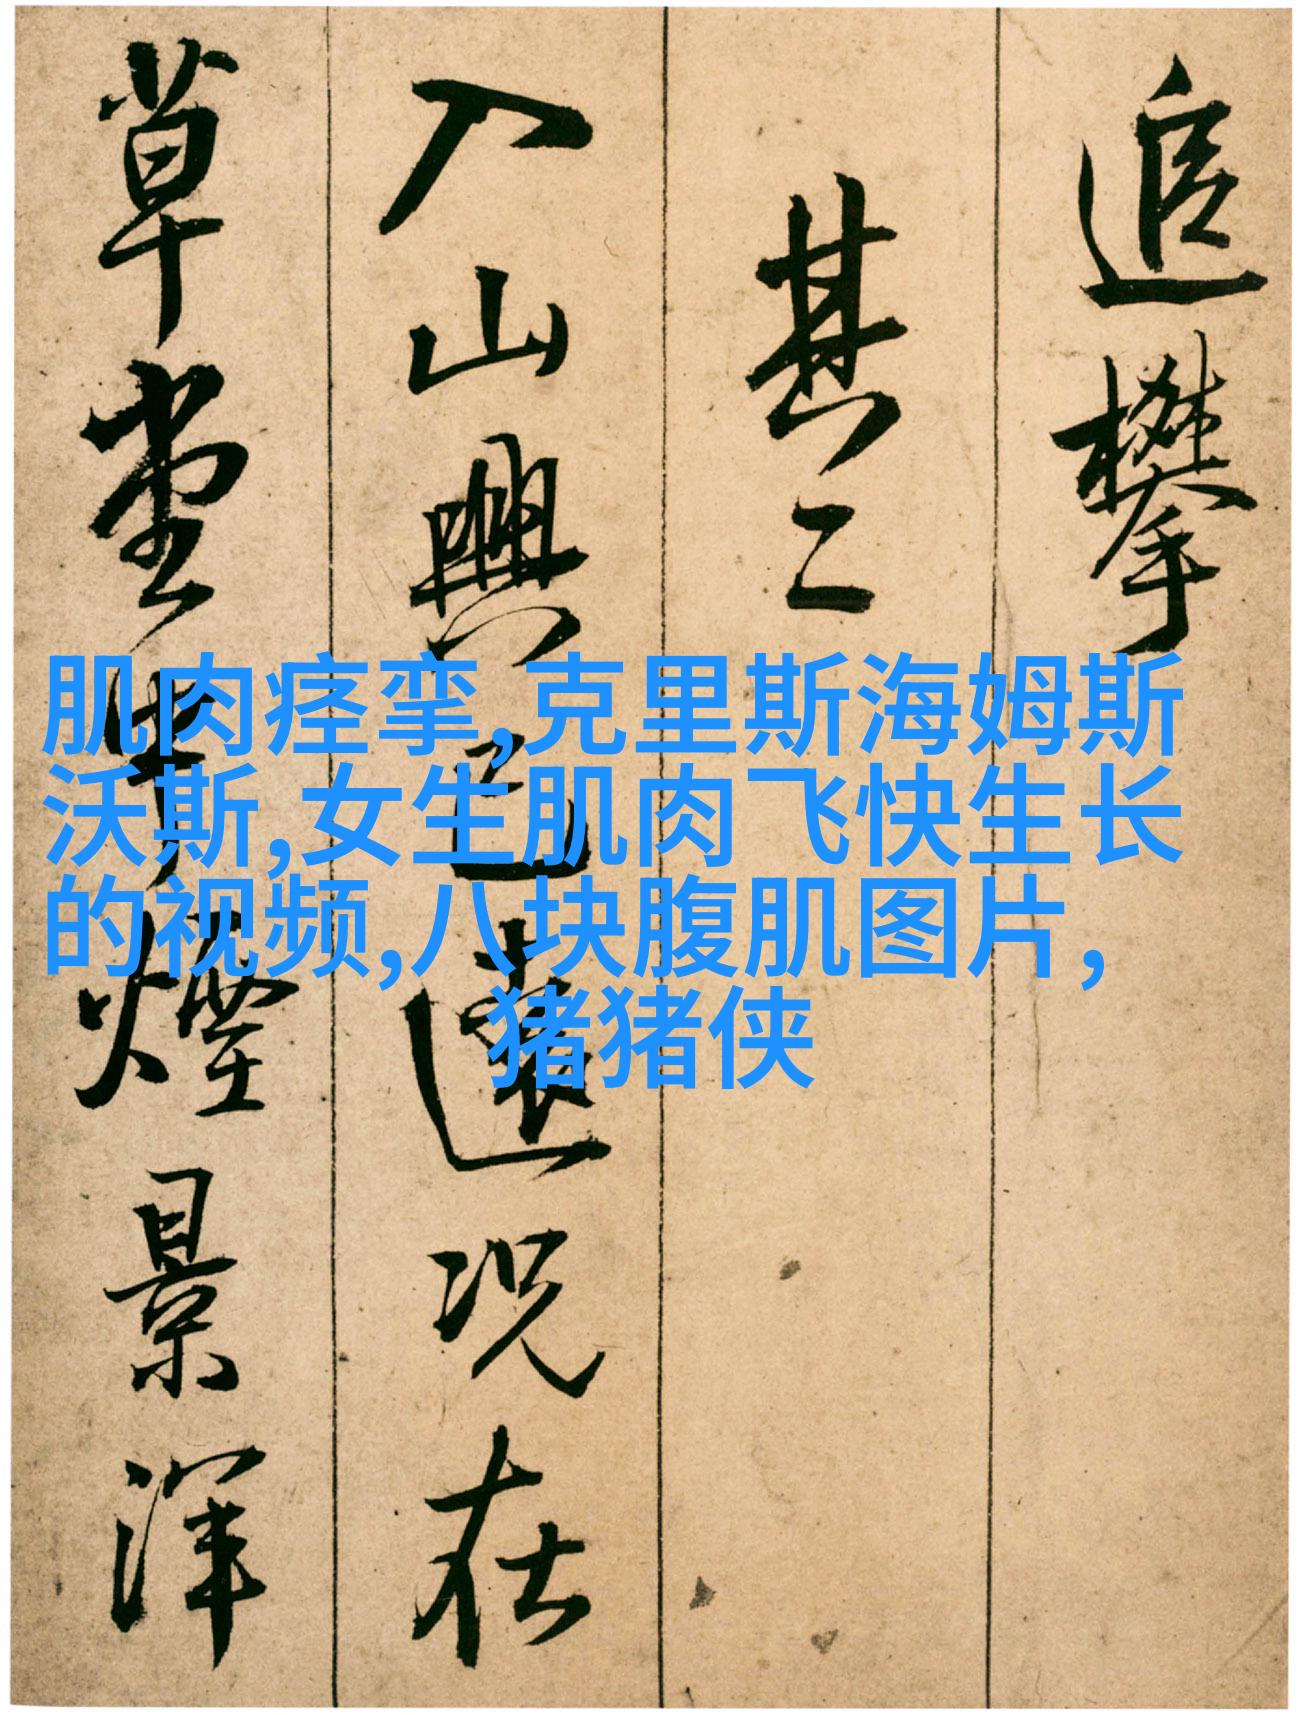 追攀
其二
入山興已遠況在
草堂煙景渾
肌肉痉挛,克里斯海姆斯
沃斯,女生肌肉飞快生长
的视频,八块腹肌图片,
猪猪侠